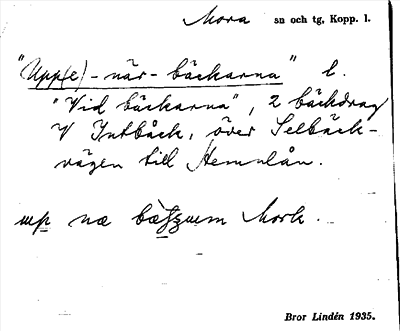 Mora sn och tg, Kopp. l.
"Upp(e)-när-bäckarna" l.
"Vid bäckarna", 2 bäckdrag
V Intbäck, över Selbäck-
vägen till Hemulån.
up næ Mork.
Bror Lindén 1935.